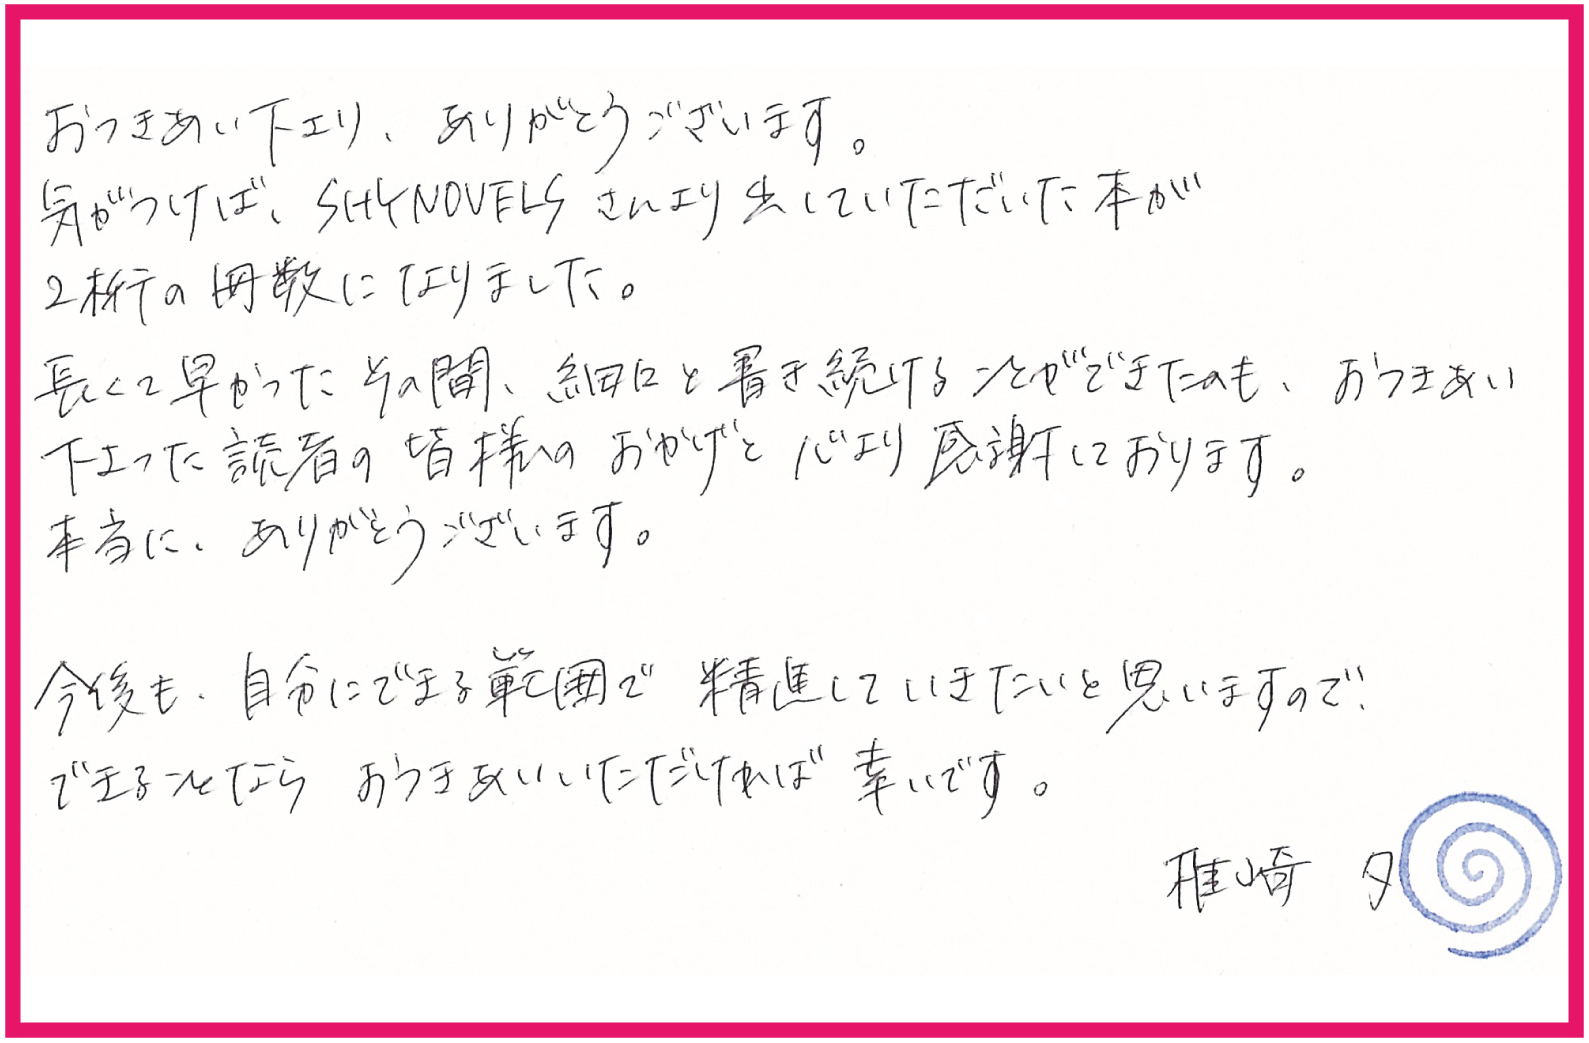 おつきあい下エり、ありがとうございます。
気がつけば、SHYNOVELSさんより出していただいた本が
2桁の冊数になりました。
長くて早かったその間、細々と書き続けることができたのも、おつきあい
下さった読者の皆様のおかげと心より感謝しております。
本当に、ありがとうございます。
今後も、自分にできる範囲で精進していきたいと思いますので、
できることならおつきあいいただければ幸いです。
椎崎 夕